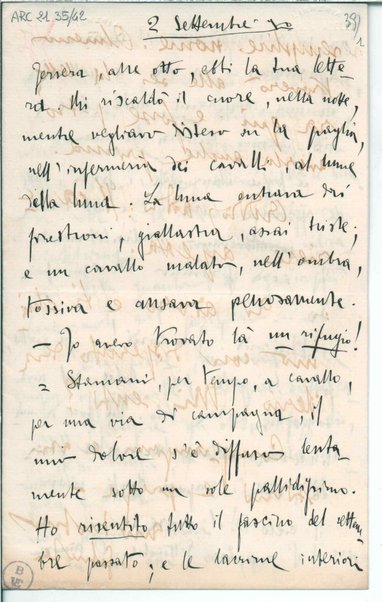 ARC 21 35/42
2 Settembre 90
39)
1
Iersera, alle otto, ebbi la tua lette-
ra. Mi riscaldò il cuore, nella notte,
mentre vegliavo disteso su la paglia,
nell'infermeria dei cavalli, al lume
della luna. La luna entrava dai
finestroni, giallastra, assai triste;
e un cavallo malato, nell'ombra,
tossiva e ansava penosamente.
– Io avevo trovato là un rifugio!
= Stamani, per tempo, a cavallo,
per una via di campagna, il
mio dolore s'è diffuso lenta-
mente sotto un sole pallidissimo.
Ho risentito tutto il fascino del settem-
bre passato; e le lacrime interiori